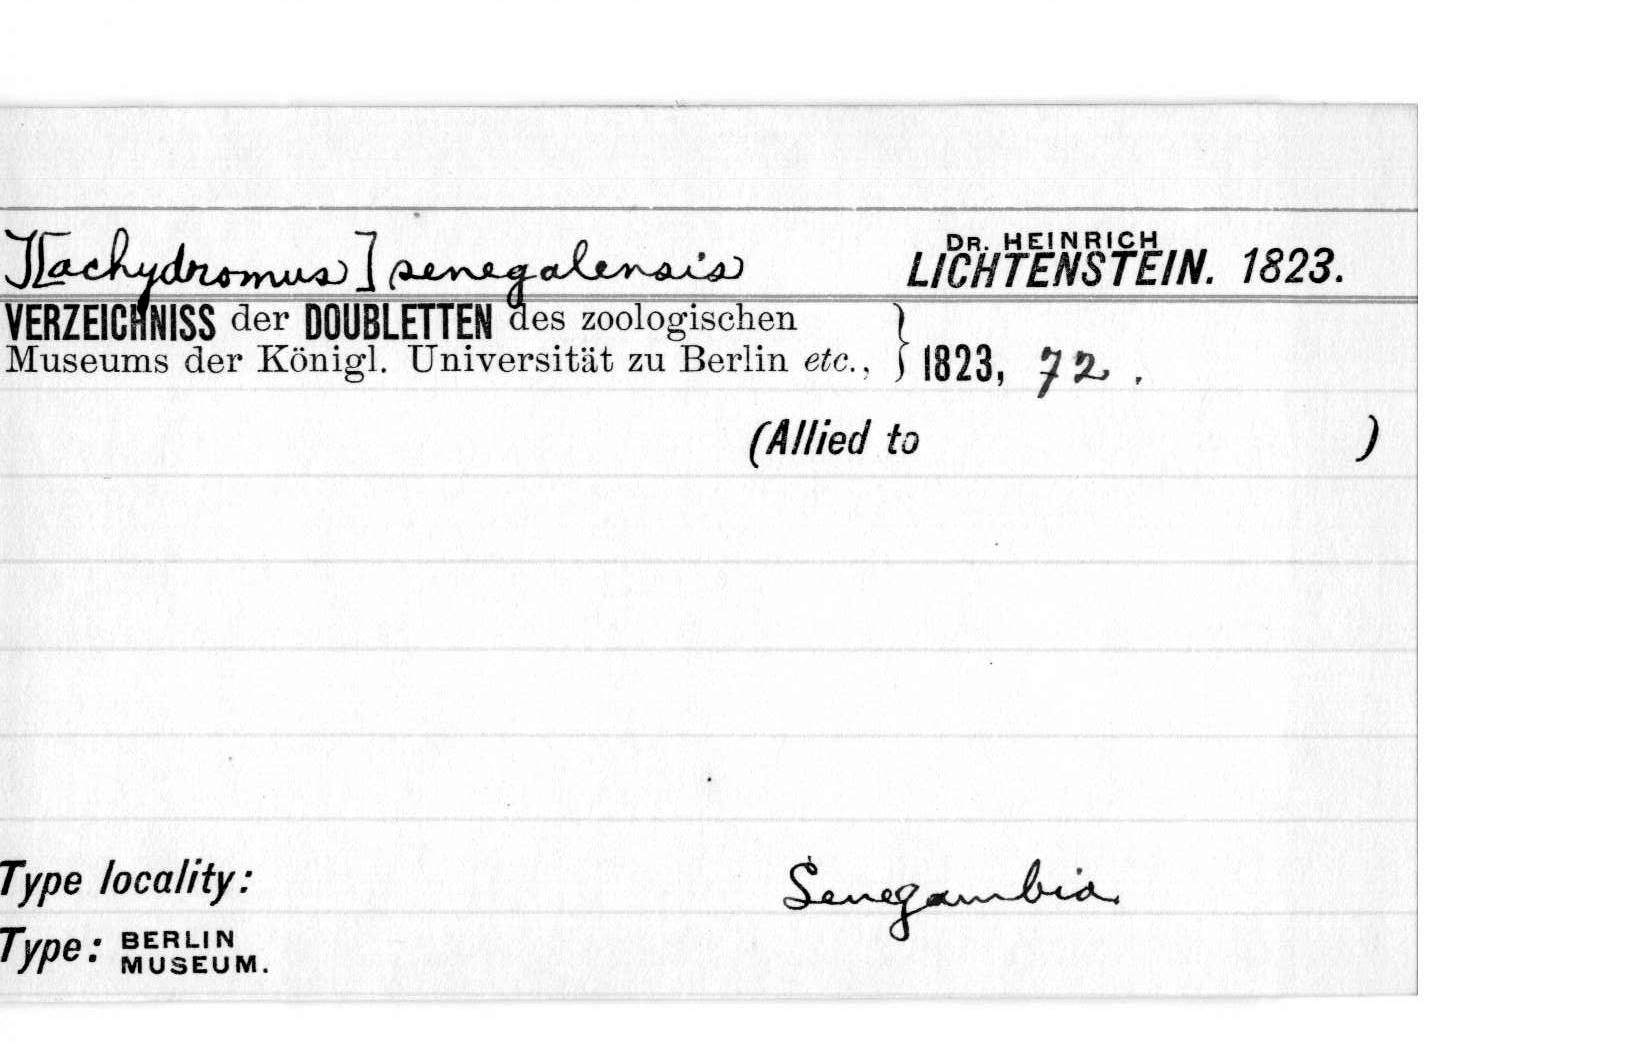 T[achydromus] senegalensis DR. HEINRICH LICHTENSTEIN. 1823.
VERZEICHNISS der DOUBLETTEN des zoologischen
Museums der Königl. Universität zu Berlin etc., } 1823, 72.
(Allied to )
Type locality: Senegambia.
Type: BERLIN MUSEUM.